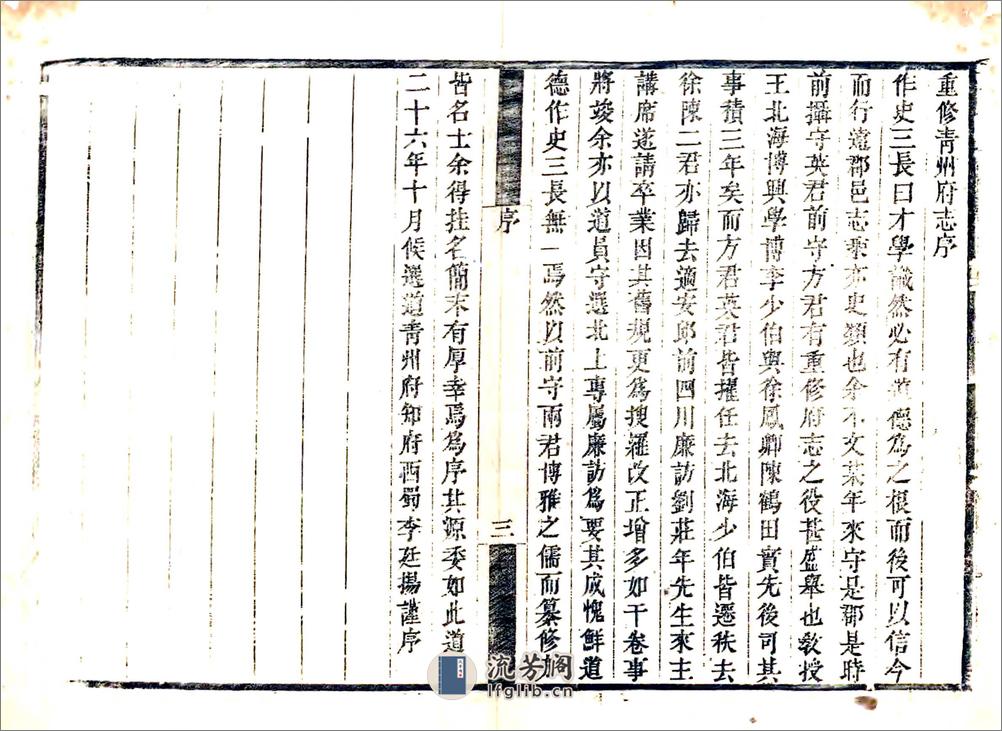 重修青州府志序
作史三長曰才學識然必有道德為之根而後可以信今
而行遠郡邑志乘亦史類也余不文某年來守是郡是時
前攝守英君前守方君有重修府志之役甚盛舉也教授
王北海博興學博李少伯與徐鳳卿陳鶴田實先後司其
事積三年矣而方君英君皆擢任去北海少伯皆遷秩去
徐陳二君亦歸去適安邱前四川廉訪劉莊年先生來主
講席遂請卒業因其舊規更為搜羅改正增多如干卷事
將竣余亦以道員守選北上專屬廉訪為要其成愧鮮道
德作史三長無一焉然以前守兩君博雅之儒而纂修
序
三
皆名士余得挂名簡末有厚幸焉為序其源委如此道
二十六年十月候選道青州府知府西蜀李廷揚謹序
流芳阁
lfglib.cn